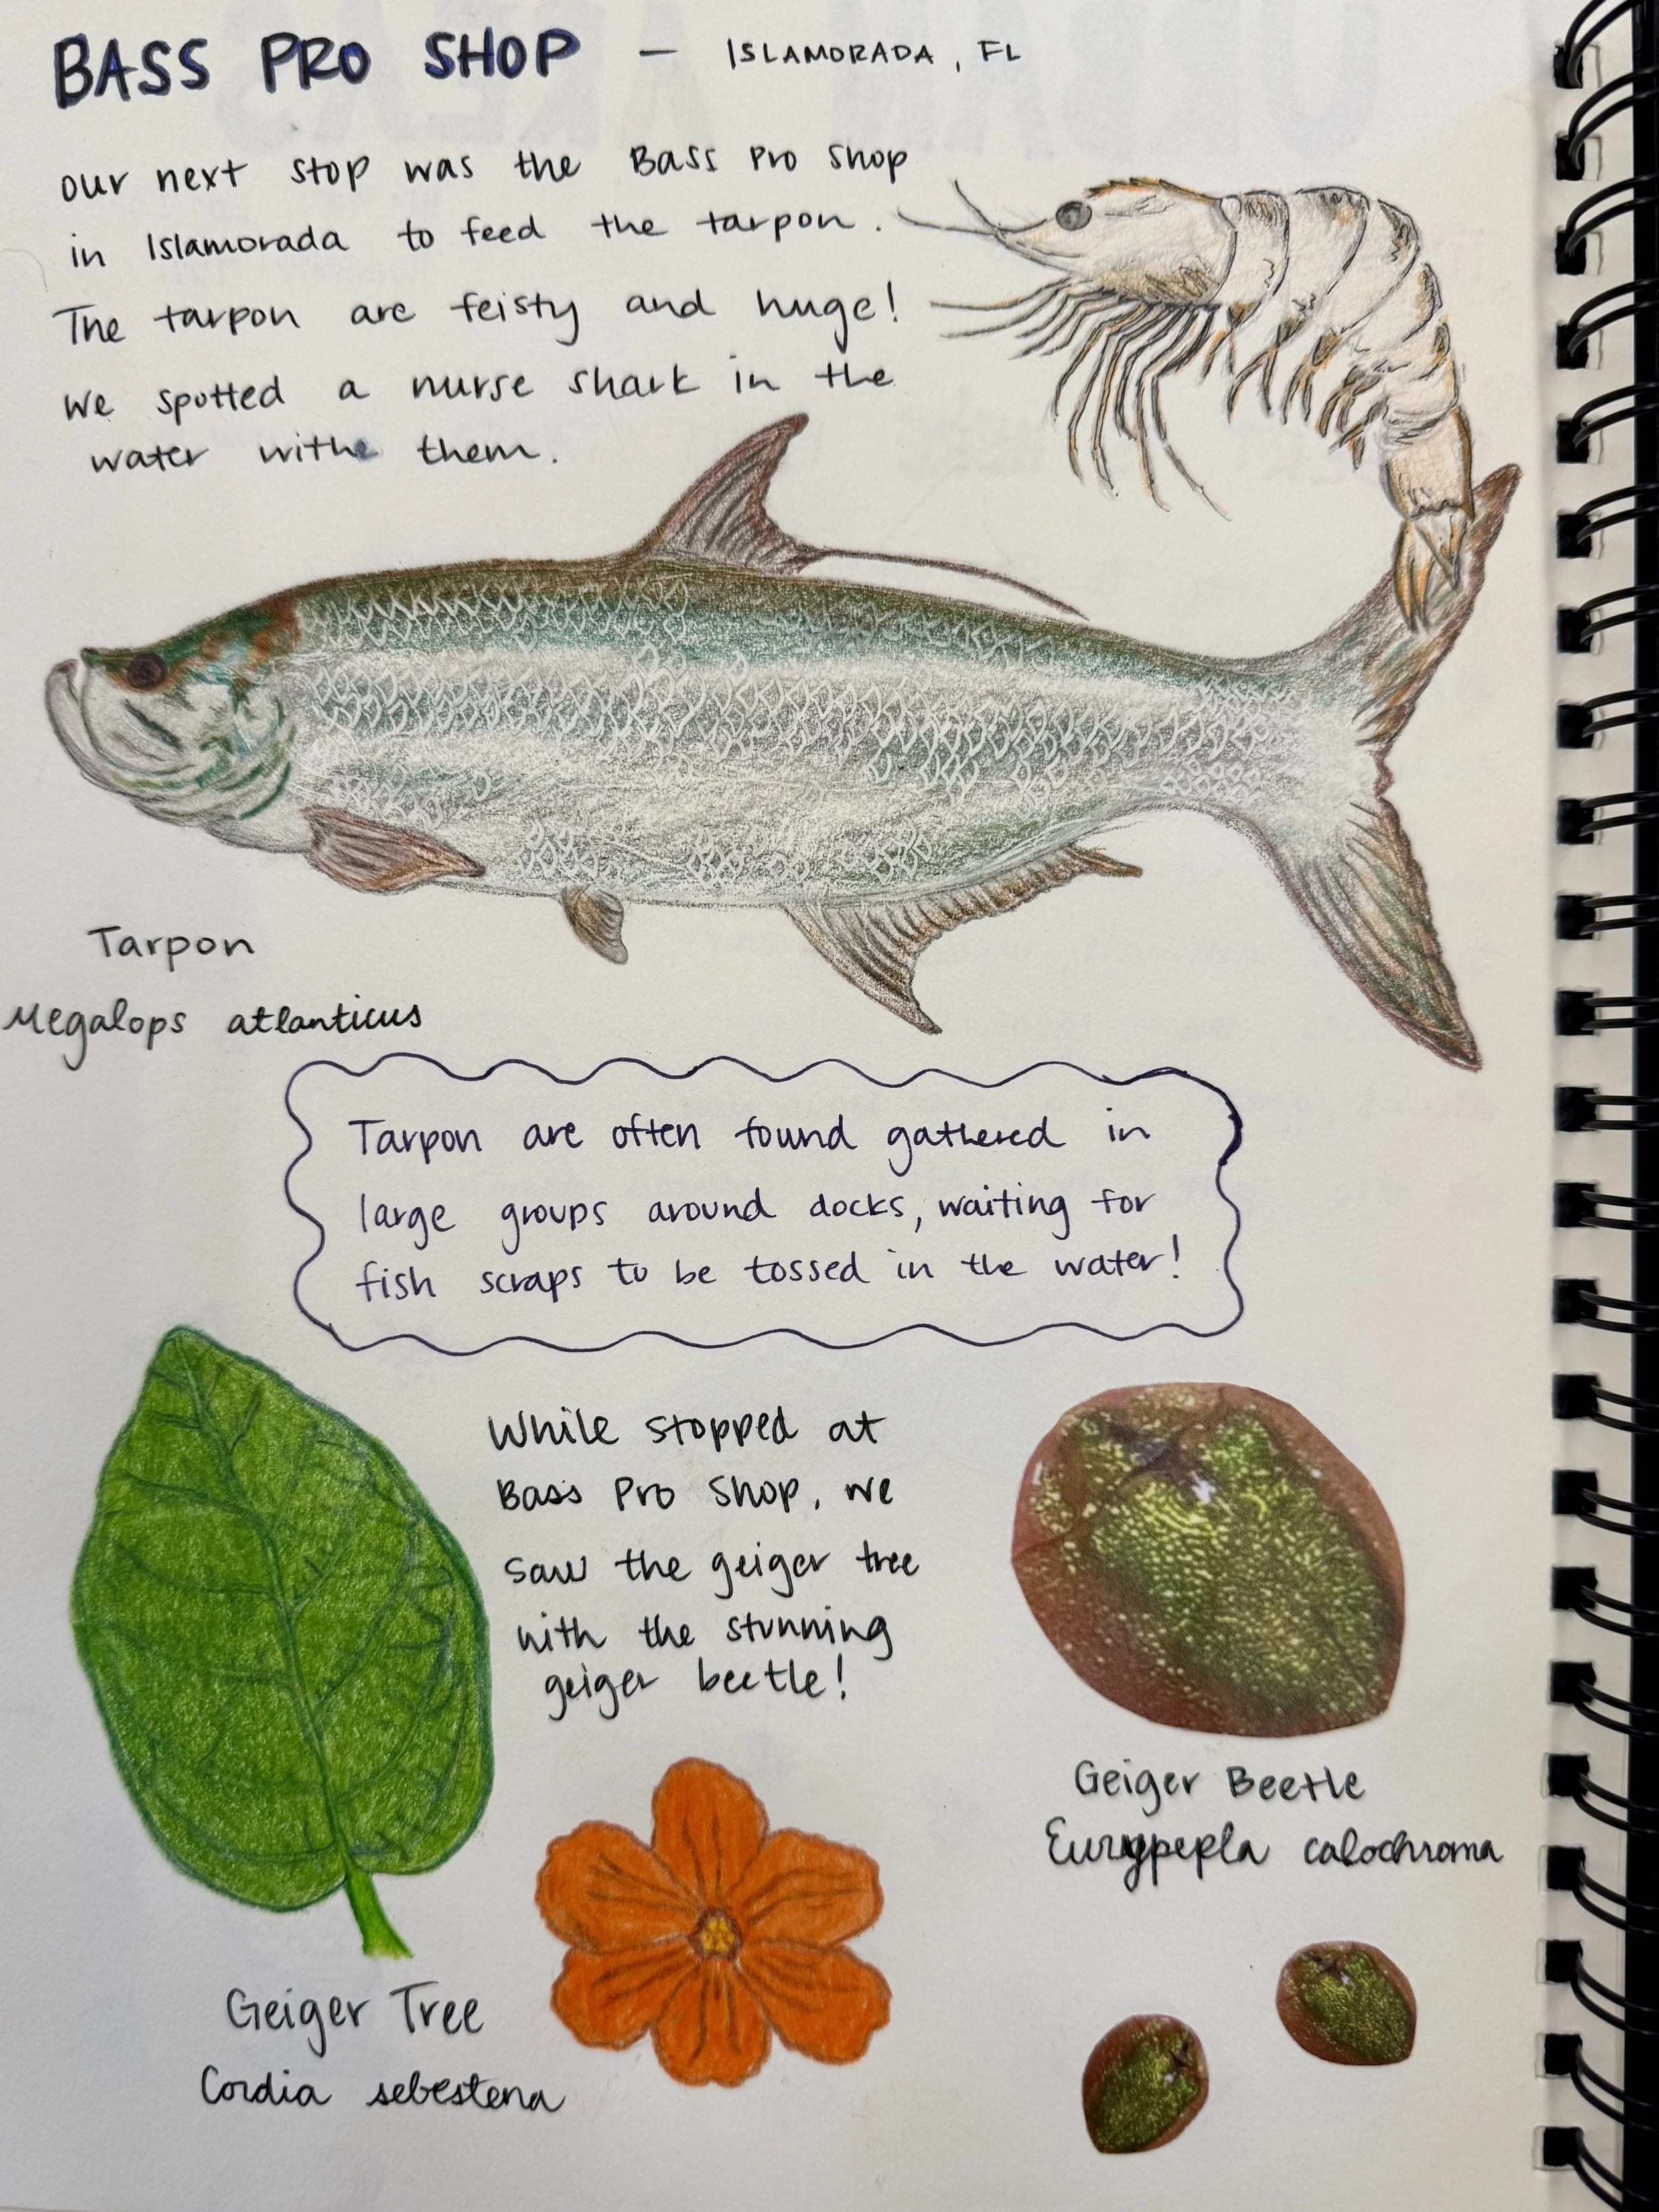 BASS PRO SHOP - ISLAMORADA, FL
our next stop was the Bass Pro Shop
in Islamorada to feed the tarpon.
The tarpon are feisty and huge!
We spotted a nurse shark in the
water withe them.
Tarpon
Megalops atlanticus
Tarpon are often found gathered in
large groups around docks, waiting for
fish scraps to be tossed in the water!
While stopped at
Bass Pro Shop, we
saw the geiger tree
with the stunning
geiger beetle!
Geiger Beetle
Eurypepla calochroma
Geiger Tree
Cordia sebestena